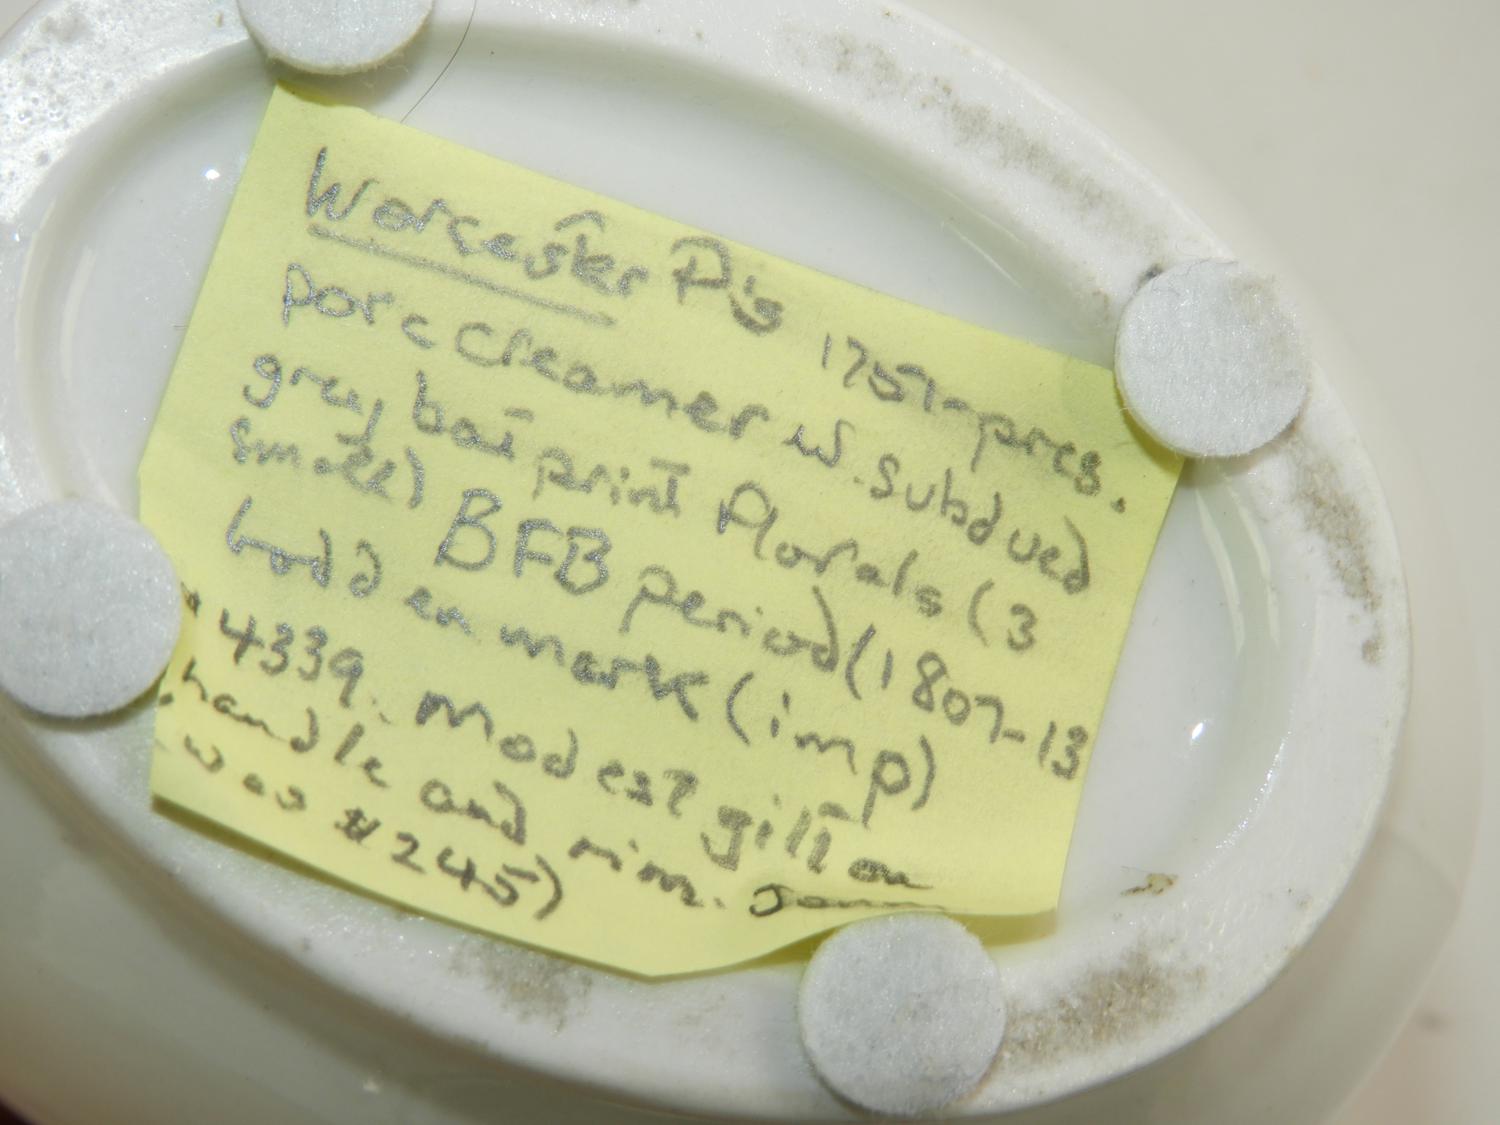 Worcester 1751-pres.
porc creamer w. subdued
grey bat print florals (3
small) BFB period (1807-13
bodd en mark (imp)
4339. modest gilt on
handle and rim.
was $245)